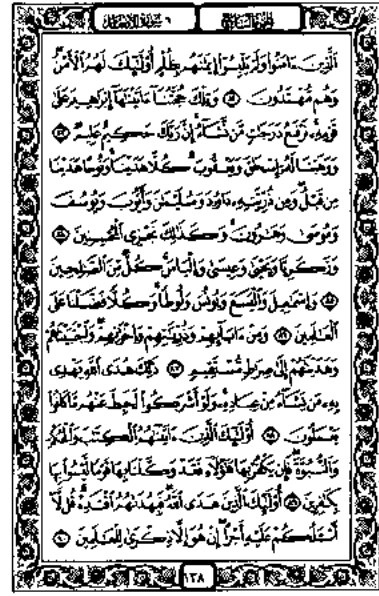 الجزء السابع ٦ سورة الأنعام
الَّذِينَ ءَامَنُوا وَلَمْ يَلْبِسُوا إِيمَٰنَهُم بِظُلْمٍ أُوْلَٰٓئِكَ لَهُمُ الْأَمْنُ
وَهُم مُّهْتَدُونَ ٨٢ وَتِلْكَ حُجَّتُنَا ءَاتَيْنَٰهَا إِبْرَٰهِيمَ عَلَىٰ
قَوْمِهِ نَرْفَعُ دَرَجَٰتٍ مَّن نَّشَاءُ إِنَّ رَبَّكَ حَكِيمٌ عَلِيمٌ ٨٣
وَوَهَبْنَا لَهُ إِسْحَٰقَ وَيَعْقُوبَ كُلًّا هَدَيْنَا وَنُوحًا هَدَيْنَا
مِن قَبْلُ وَمِن ذُرِّيَّتِهِ دَاوُدَ وَسُلَيْمَٰنَ وَأَيُّوبَ وَيُوسُفَ
وَمُوسَىٰ وَهَٰرُونَ وَكَذَٰلِكَ نَجْزِي الْمُحْسِنِينَ ٨٤
وَزَكَرِيَّا وَيَحْيَىٰ وَعِيسَىٰ وَإِلْيَاسَ كُلٌّ مِّنَ الصَّٰلِحِينَ
٨٥ وَإِسْمَٰعِيلَ وَالْيَسَعَ وَيُونُسَ وَلُوطًا وَكُلًّا فَضَّلْنَا عَلَى
الْعَٰلَمِينَ ٨٦ وَمِنْ ءَابَائِهِمْ وَذُرِّيَّٰتِهِمْ وَإِخْوَٰنِهِمْ وَاجْتَبَيْنَٰهُمْ
وَهَدَيْنَٰهُمْ إِلَىٰ صِرَٰطٍ مُّسْتَقِيمٍ ٨٧ ذَٰلِكَ هُدَى اللَّهِ يَهْدِي
بِهِ مَن يَشَاءُ مِنْ عِبَادِهِ وَلَوْ أَشْرَكُوا لَحَبِطَ عَنْهُم مَّا كَانُوا
يَعْمَلُونَ ٨٨ أُوْلَٰٓئِكَ الَّذِينَ ءَاتَيْنَٰهُمُ الْكِتَٰبَ وَالْحُكْمَ
وَالنُّبُوَّةَ فَإِن يَكْفُرْ بِهَا هَٰٓؤُلَاءِ فَقَدْ وَكَّلْنَا بِهَا قَوْمًا لَّيْسُوا بِهَا
بِكَٰفِرِينَ ٨٩ أُوْلَٰٓئِكَ الَّذِينَ هَدَى اللَّهُ فَبِهُدَىٰهُمُ اقْتَدِهْ قُل لَّا
أَسْـَٔلُكُمْ عَلَيْهِ أَجْرًا إِنْ هُوَ إِلَّا ذِكْرَىٰ لِلْعَٰلَمِينَ ٩٠
١٣٨